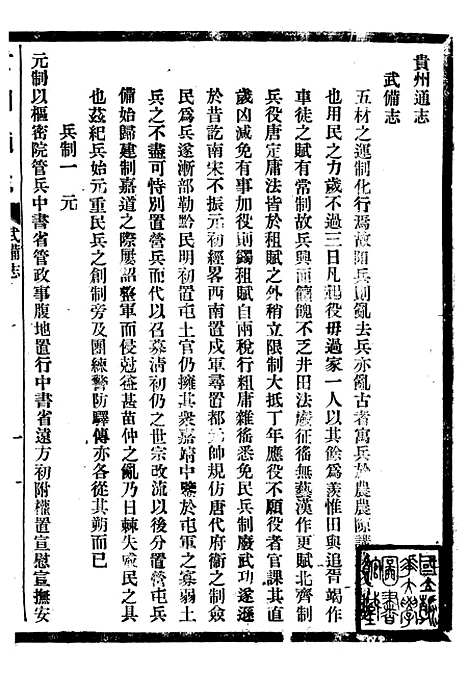 貴州通志
武備志
五材之運制化行焉故陌兵則亂去兵亦亂古者寓兵於農農隙講
也用民之力歲不過三日凡起役毋過家一人以其餘為羨惟田與追胥竭作
車徒之賦有常制故兵興而饟餽不乏井田法廢征徭無藝漢作更賦北齊制
兵役唐定庸法皆於租賦之外稍立限制大抵丁年應役不願役者官課其直
歲凶減免有事加役則蠲租賦自兩稅行租庸雜徭悉免民兵制廢武功遂遜
於昔訖南宋不振元初經畧西南置戍軍尋置都元帥規仿唐代府衞之制僉
民為兵遂漸部勒黔民明初置屯土官仍擁其衆嘉靖中鑒於屯軍之寡弱土
兵之不盡可恃別置營兵而代以召募清初仍之世宗改流以後分置營屯兵
備始歸建制嘉道之際屢詔整軍而侵尅益甚苗仲之亂乃日棘失敗民之具
也茲紀兵始元重民兵之創制旁及團練警防驛傳亦各從其朔而已
兵制一　元
元制以樞密院管兵中書省管政事腹地置行中書省遠方初附權置宣慰宣撫安
武備志
一